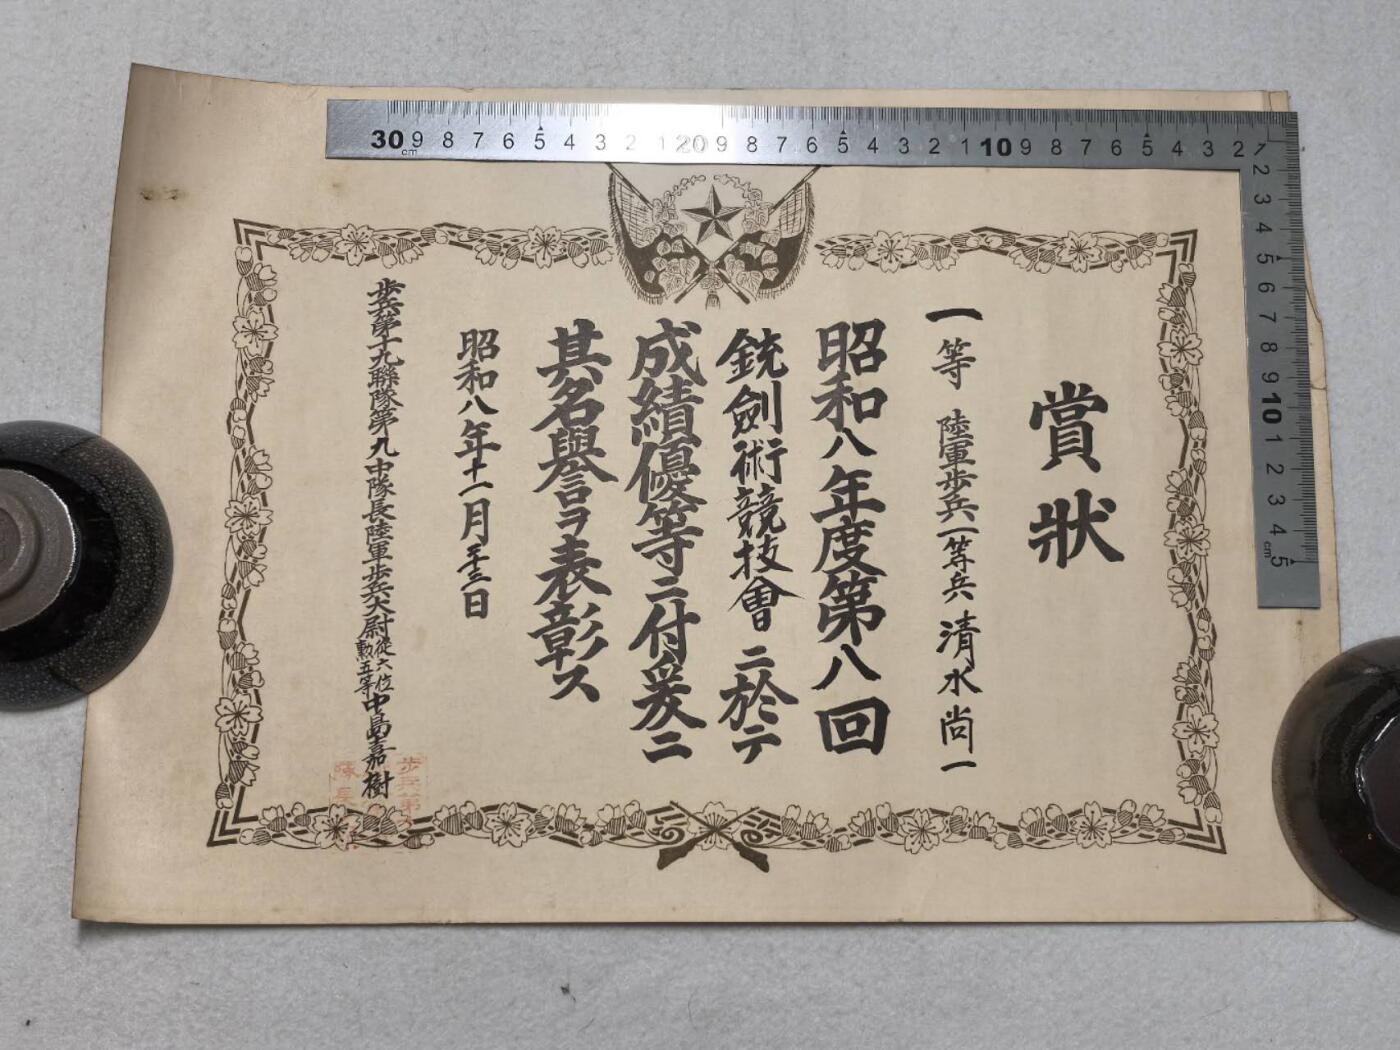 賞狀
一等 陸軍歩兵一等兵 清水尚一
昭和八年度第八回
銃劍術競技會ニ於テ
成績優等ニ付爰ニ
其名譽ヲ表彰ス
昭和八年十一月二十三日
歩兵第十九聯隊第九中隊長陸軍歩兵大尉從六位勲五等中島嘉樹
歩兵第
隊長
30 9 8 7 6 5 4 3 2 1 20 9 8 7 6 5 4 3 2 1 10 9 8 7 6 5 4 3 2 1
cm
2 3 4 5 6 7 8 9 10 1 2 3 4 5
cm